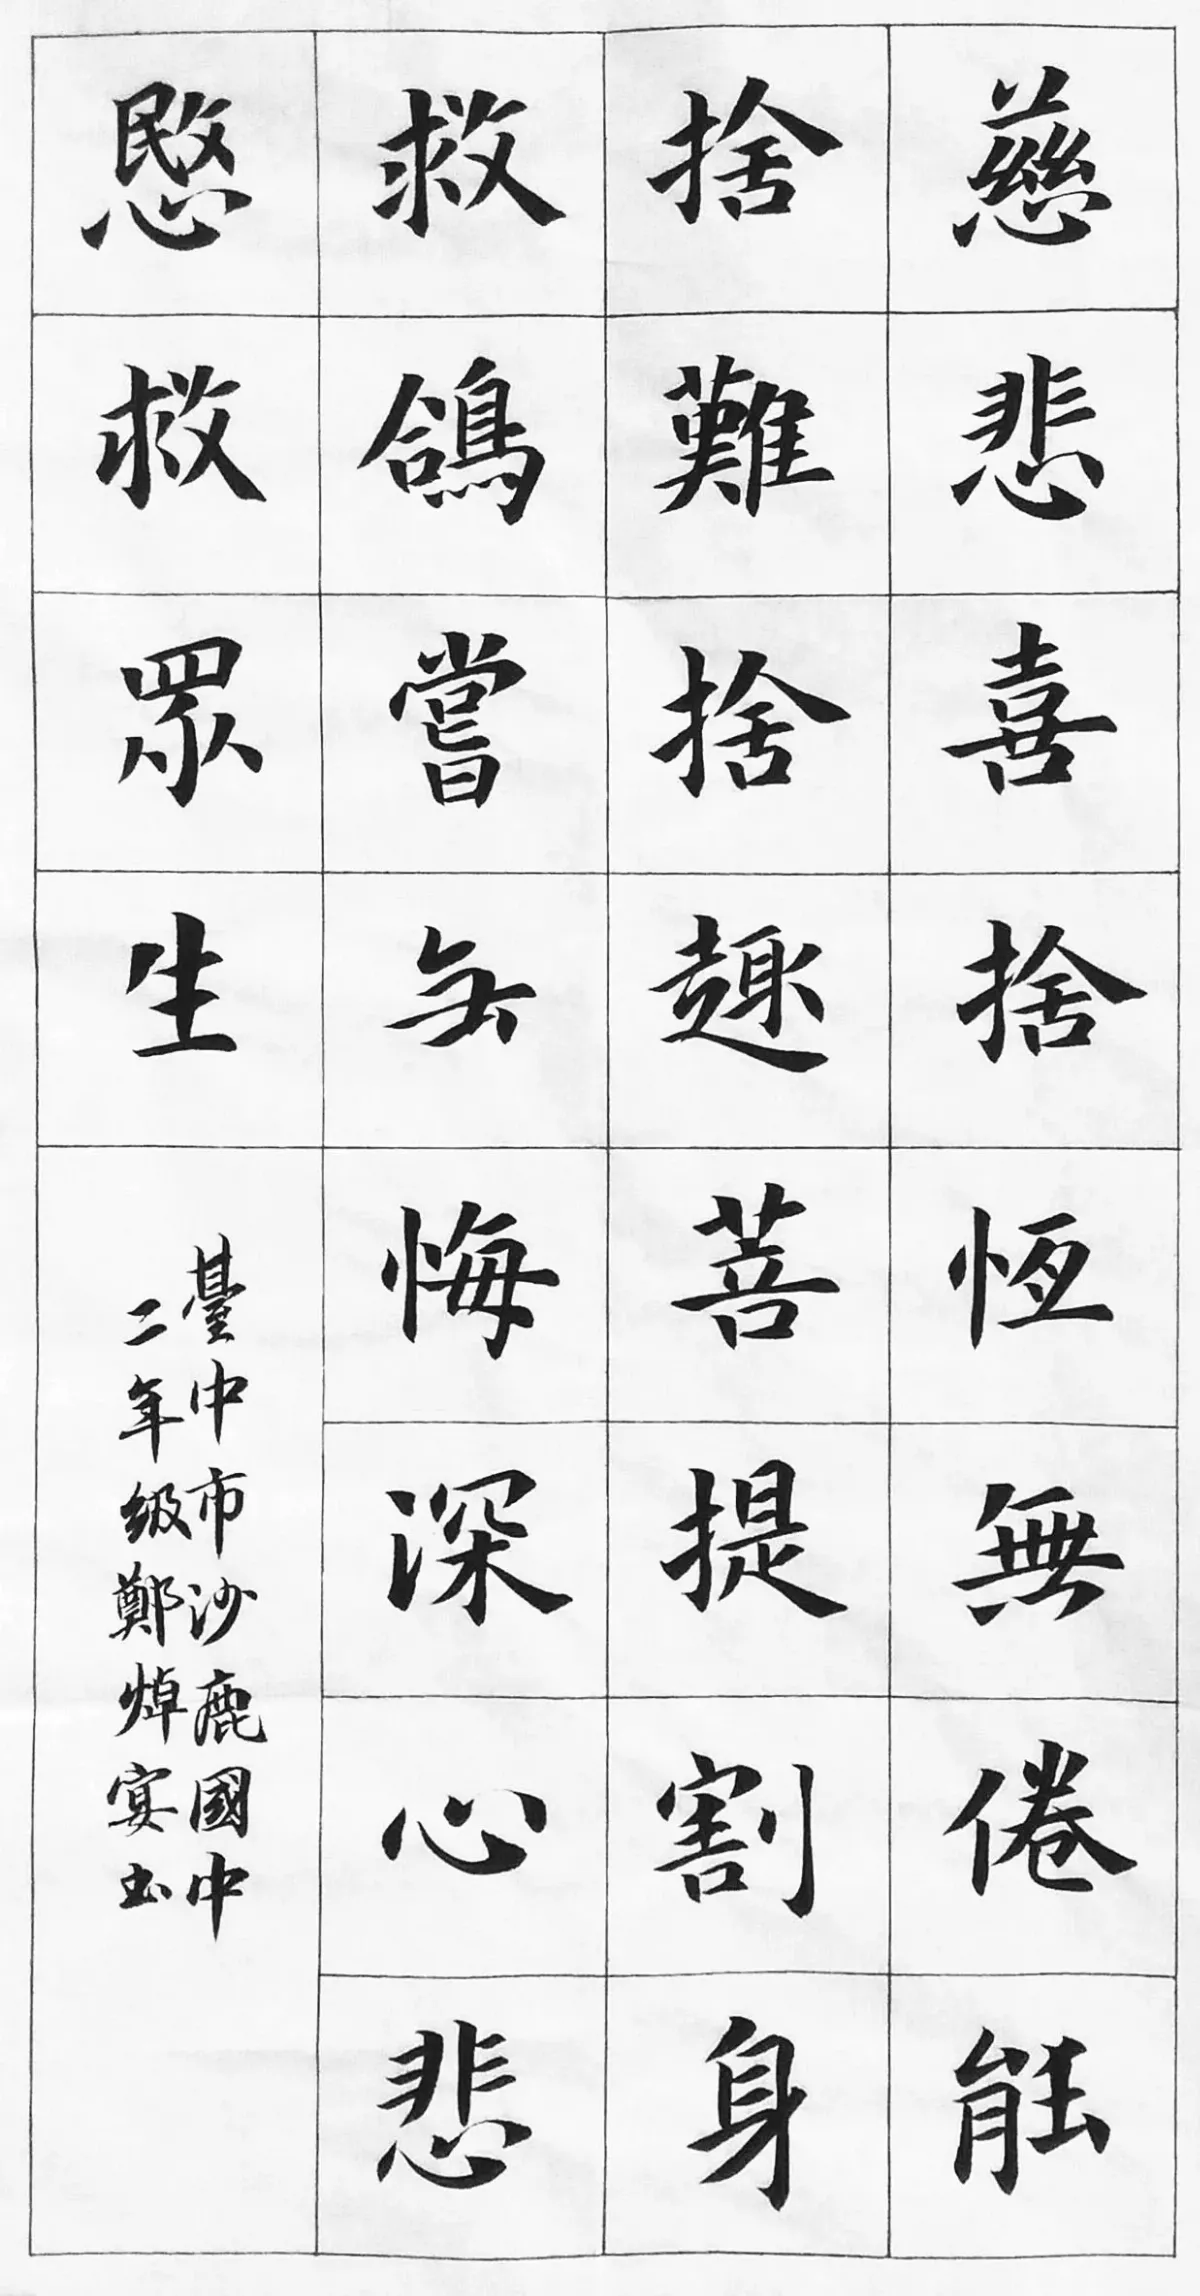 慈悲喜捨恆無倦能
捨難捨趣菩提割身
救鴿嘗無悔深心悲
愍救眾生
臺中市沙鹿國中
二年級鄭焯宴书